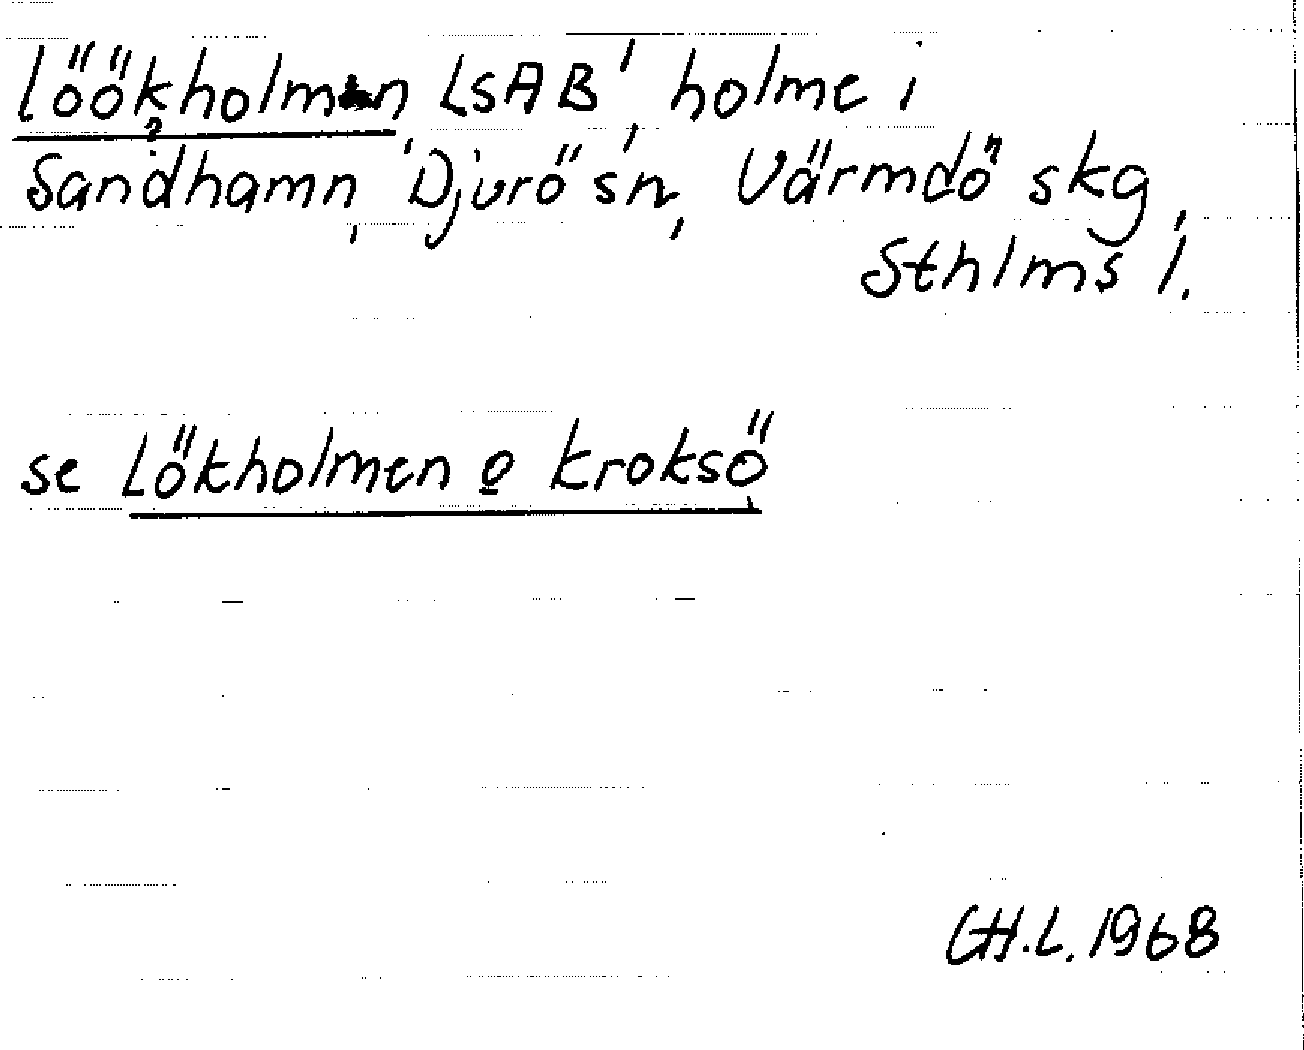 Löökholmen LSAB, holme i
?
Sandhamn, Djurö sn, Värmdö skg,
Sthlms l.
se Lökholmen o Kroksö
GH.L. 1968